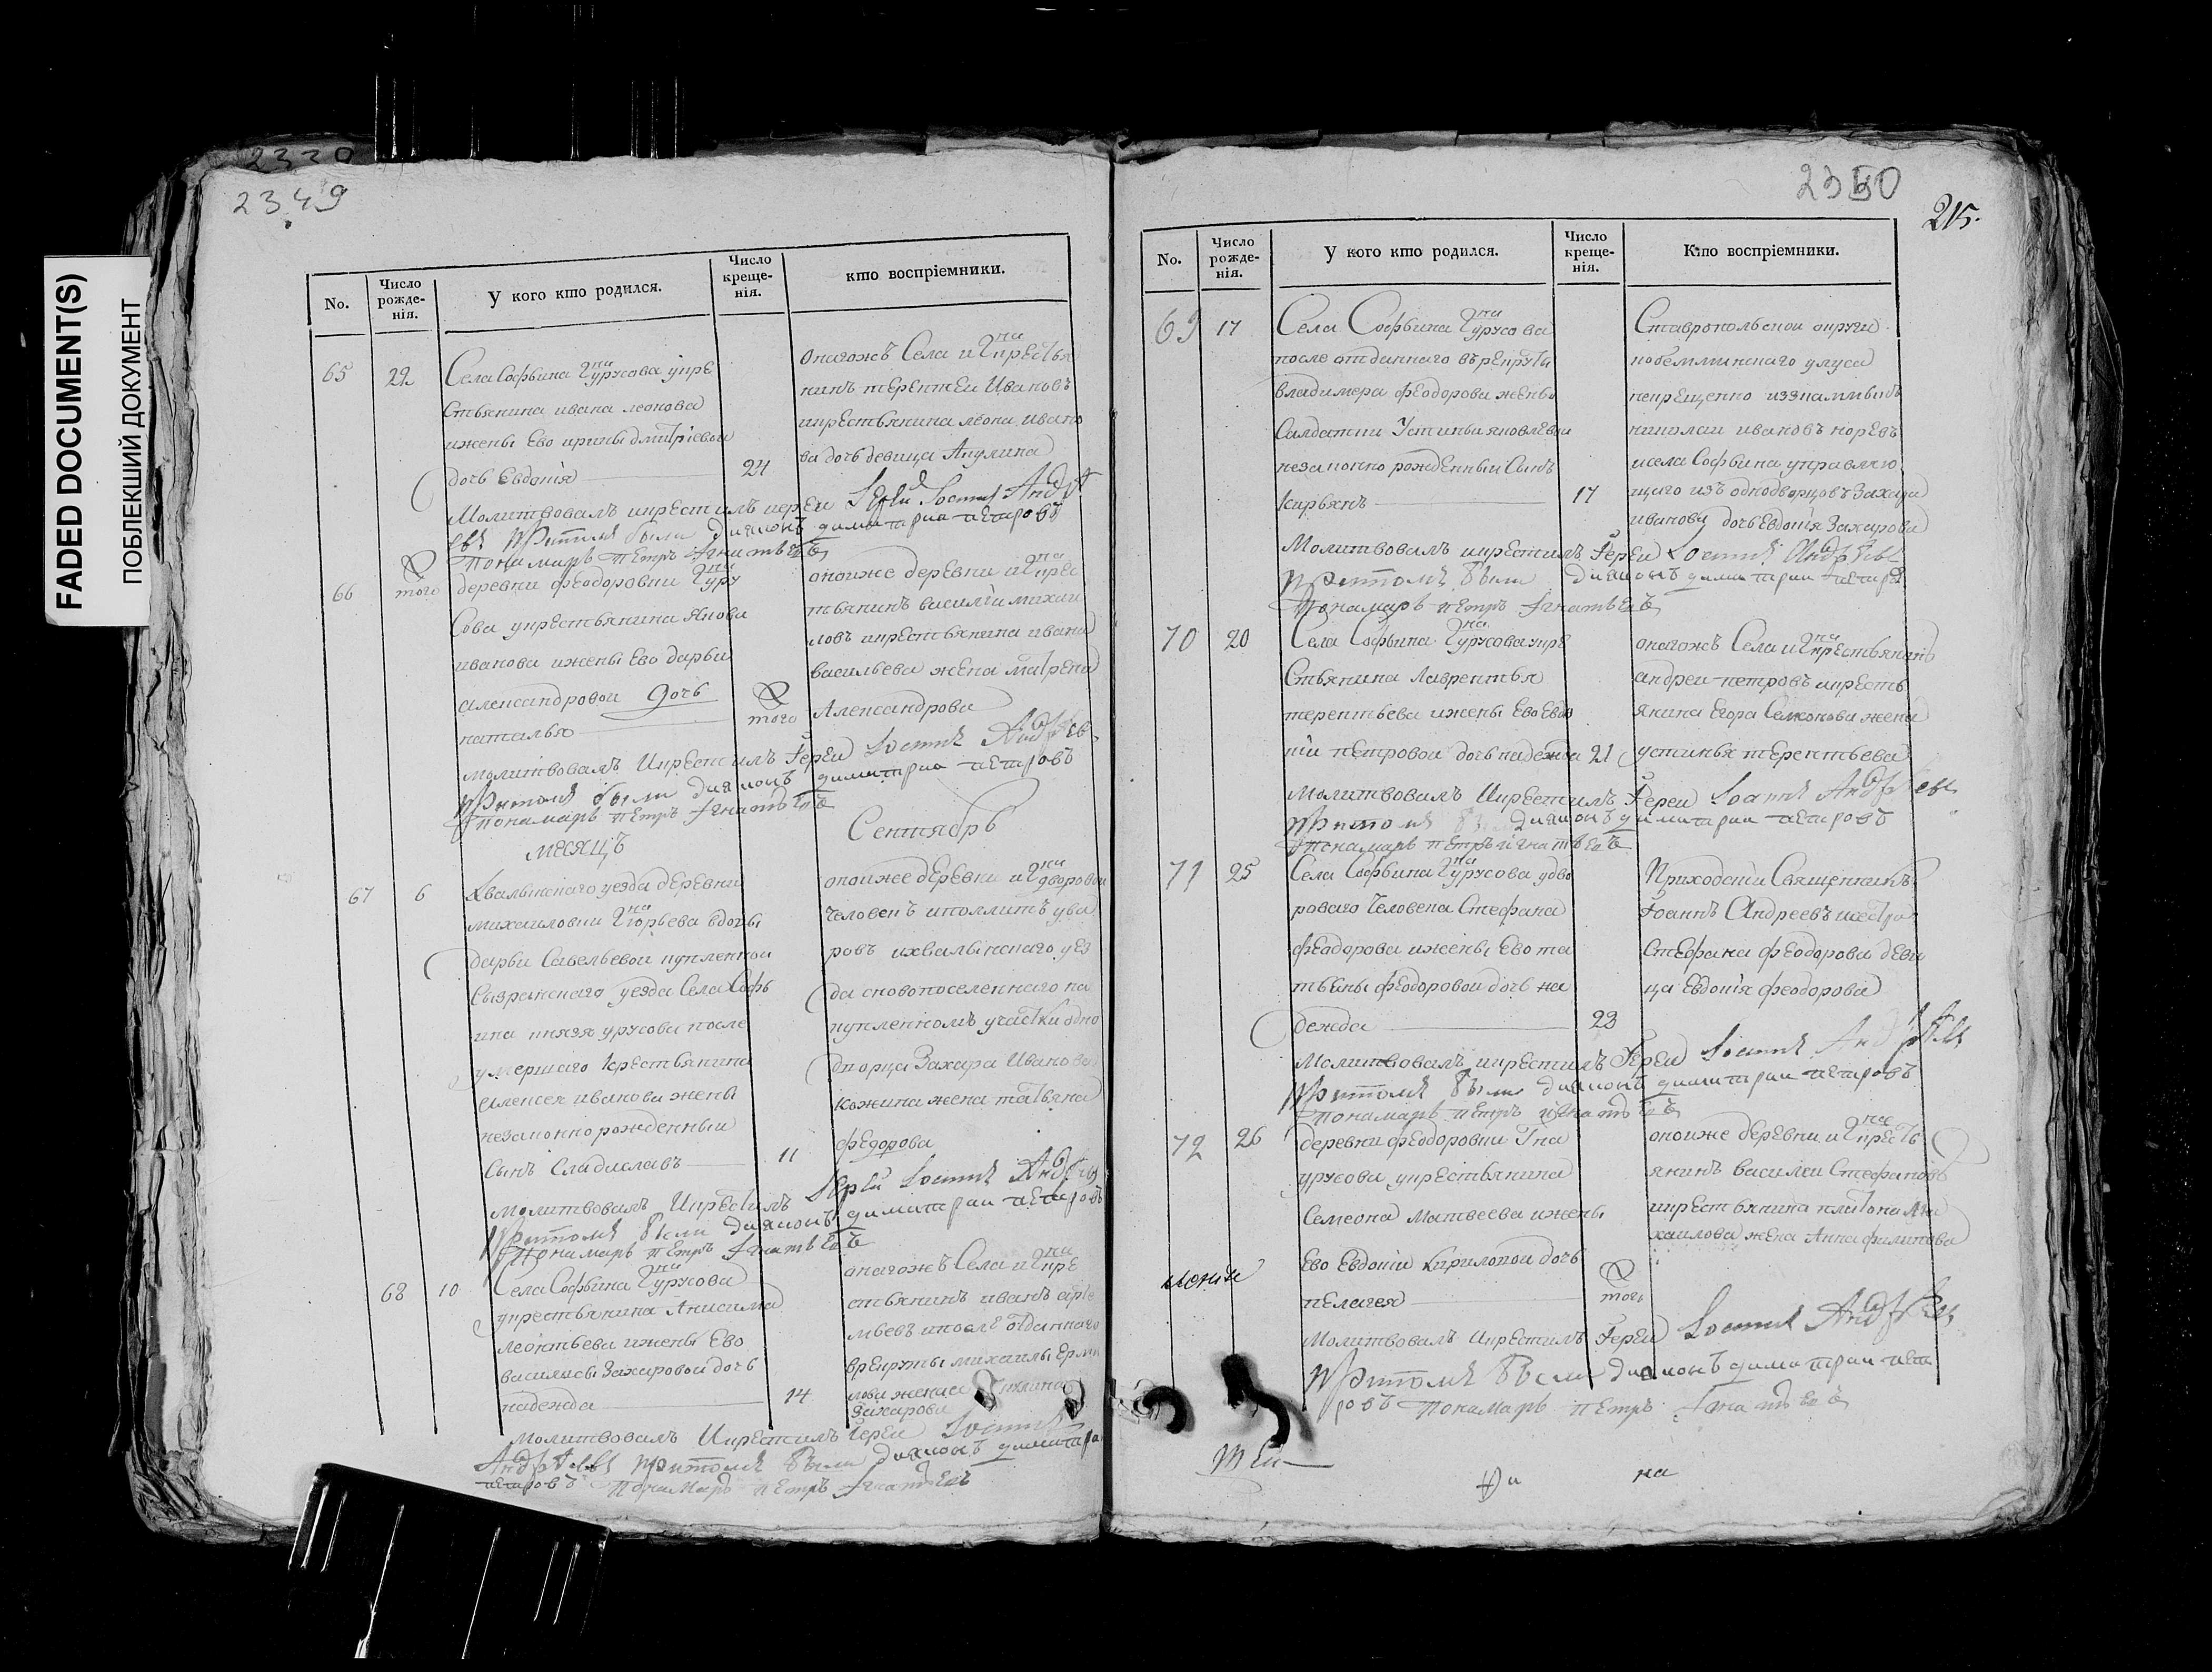 FADED DOCUMENT(S)
ПОБЛЕКШИЙ ДОКУМЕНТ
2349
No.
Число рожде-нія.
У кого кто родился.
Число креще-нія.
кто воспріемники.
65
22
Села Софьина Гна урусова укре
стьянина ивана леонова
ижены Ево ирины дмитріевои
дочь Евдокія
24
оногожъ Села и Гна крестья
нинъ терентеи Ивановъ
икрестьянина леона ивано
ва дочь девица Акулина
Молитвовалъ икрестилъ иереи Іоаннъ Андрѣ
евъ притомъ были диаконъ димитрии петровъ
пономарь петръ Игнатьевъ
66
того
деревни феодоровки Гна уру
сова укрестьянина Якова
иванова ижены Ево дарьи
александровои дочь
наталья
того
оноиже деревни и Гна крес
тьянинъ василіи михаи
ловъ икрестьянина ивана
васильева жена матрена
Александрова
молитвовалъ Икрестилъ Іереи Іоаннъ Андреев
притомъ были диаконъ димитрии петровъ
пономарь петръ Игнатьевъ
месяцъ Сентябрь
67
6
Хвалынскаго уезда деревни
михаиловки Гна юрьева вдовы
дарьи Савельевои купленнои
Сызранскаго уезда Села Софь
ина князя урусова после
умершаго крестьянина
алексея иванова жены
незаконно рожденныи
сынъ Сладиславъ
11
оноиже деревни и Гна дворовои
человекъ иполлитъ ува
ровъ ихвалынскаго уез
да сновопоселеннаго на
купленномъ участки одно
дворца Захара Иванова
кожина жена татьяна
федорова
молитвовалъ Икрестилъ Іереи Іоаннъ Андреевъ
притомъ были диаконъ димитрии петровъ
пономарь петръ Игнатьевъ
68
10
Села Софьина Гна урусова
укрестьянина Анисима
леонтьева ижены Ево
василисы Захаровои дочь
надежда
14
оногожъ Села и Гна кре
стьянинъ иванъ арте
мьевъ ипосле отданнаго
врекруты михаилы Ерми
лова жена
Захарова
молитвовалъ Икрестилъ Іереи Іоаннъ
Андреевъ притомъ были диаконъ димитри
петровъ пономарь петръ Игнатьевъ
2350
215.
No.
Число рожде-нія.
У кого кто родился.
Число креще-нія.
Кто воспріемники.
69
17
Села Софьина Гна урусова
после отданнаго врекруты
владимера феодорова жены
Салдатки Устиньи яковлевои
незаконно рожденныи Сынъ
кирьянъ
17
Ставропольскои округи
улуса
некрещенно
николаи ивановъ
исела Софьина управляю
щаго изъ однодворцовъ Захара
иванова дочь Евдокія Захарова
Молитвовалъ икрестилъ Іереи Іоаннъ Андреевъ
притомъ были диаконъ димитрии петро
пономарь петръ Игнатьевъ
70
20
Села Софьина Гна урусова укре
стьянина Лаврентья
терентьева ижены Ево Евдо
кіи петровои дочь надежда
21
оногожъ Села и Гна крестьянинъ
андреи петровъ икресть
янина Егора Семионова жена
устинья терентьева
молитвовалъ Икрестилъ Іереи Іоаннъ Андреевъ
притомъ были диаконъ димитрии петровъ
пономарь петръ игнатьевъ
71
25
Села Софьина Гна урусова удво
роваго человека Стефана
феодорова ижены Ево та
тьяны феодоровои дочь на
дежда
23
Приходскіи Священникъ
Іоаннъ Андреевъ исестра
Стефана феодорова деви
ца Евдокія феодорова
молитвовалъ икрестилъ Іереи Іоаннъ Андреевъ
притомъ были диаконъ димитрии петровъ
пономарь петръ игнатьевъ
72
26
деревни феодоровки Гна
урусова укрестьянина
Семеона матвеева ижены
Ево Евдокіи кириловои дочь
пелагея
того
оноиже деревни и Гна кресть
янинъ василеи Стефановъ
икрестьянина платона ми
хаилова жена Анна филипова
молитвовалъ Икрестилъ Іереи Іоаннъ Андреевъ
притомъ были диаконъ димитрии пет
ровъ пономарь петръ Игнатьевъ